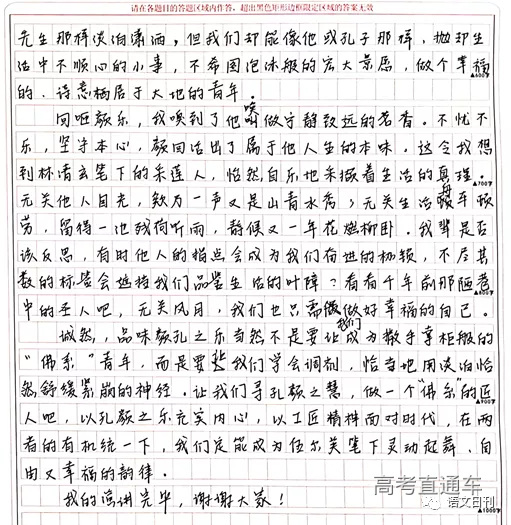 请在各题目的答题区域内作答，超出黑色矩形边框限定区域的答案无效
先生那样淡泊潇洒，但我们却能像他或孔子那样，抛却生
活中不顺心的小事，不希图泡沫般的宏大景愿，做个幸福
的、诗意栖居于大地的青年。
▲600字
回咂颜乐，我嗅到了他唤做守静致远的茗香。不忧不
乐，坚守本心，颜回活出了属于他人生的本味。这令我想
到林清玄笔下的采莲人，怡然自乐地采撷着生活的真理。
▲700字
无关他人目光，欸乃一声又是山青水秀；无关生活舟车顿
劳，留得一池残荷听雨，静候又一年花燃柳卧。我辈是否
该反思，有时他人的指点会成为我们奋进的枷锁，不尽其
数的标签会遮挡我们品鉴生活的叶障？看看千年前那陋巷
▲800字
中的圣人吧，无关风月，我们也只需做好幸福的自己。
诚然，品味颜孔之乐当然不是要让我们成为撒手掌柜般的
“佛系”青年，而是要我们学会调剂，恰当地用淡泊怡
然舒缓紧崩的神经。让我们寻孔颜之慧，做一个“佛系”的匠
▲900字
人吧，以孔颜之乐充实内心，以工匠精神面对时代，在两
者的有机统一下，我们定能成为伍尔芙笔下灵动起舞、自
由又幸福的韵律。
我的演讲完毕，谢谢大家！
▲1000字
高考直通车
语文日刊